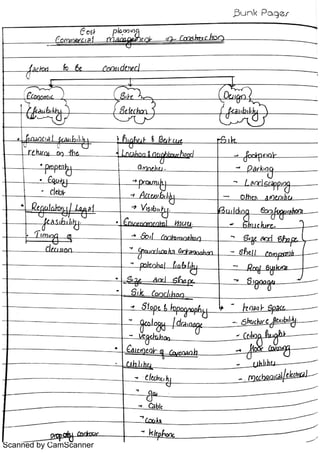 Bunk Pages
Cost planning
Commercial management of Construction
factors to be considered
Economic feasibility
Site Selection
Design feasibility
• financial feasibility
return on the
• property
• Equity
• debt
• Regulatory / Legal feasibility
• Timing of decision
• Highest & Best use
• Location & neighbourhood
amenities
→ proximity
→ Accessibility
→ Visibility
• Environmental issues
→ Soil Contamination
→ groundwater Contamination
→ potential liability
• Size and Shape
• Site Condition
→ Slope & topography
→ geology / drainage
→ vegetation
• Easement & Covenants
• Utilities
→ electricity
→ gas
→ Cable
→ telephone
Site
- footprint
- Parking
- Landscapping
- other amenities
Building Configuration
- Structure
- Size and Shape
- Shell
- Roof System
- Signage
→ tenant Space
- Structure flexibility
- Ceiling height
→ floor covering
- Utility
- mechanical/electrical
Scanned by CamScanner